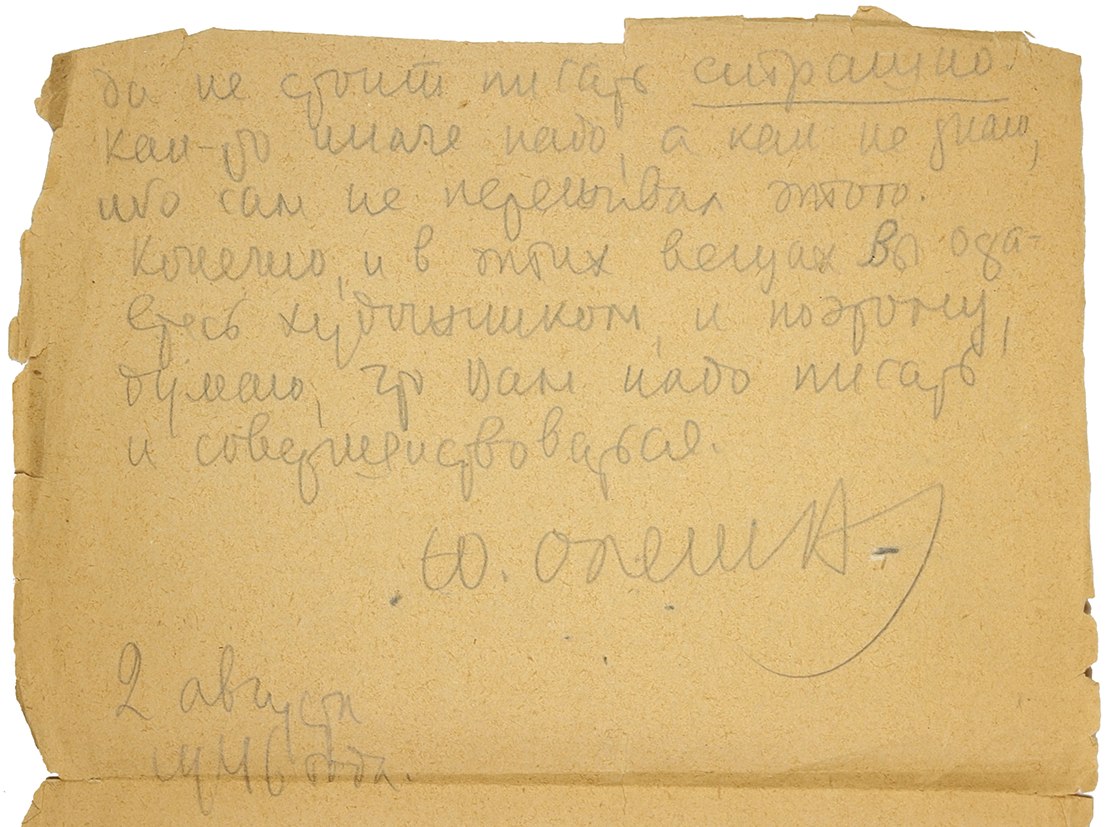 да не стоит писать страшно.
Как-то иначе надо, а как не знаю,
ибо сам не переживал этого.
Конечно, и в этих вещах Вы оста-
етесь художником, и поэтому,
думаю, что Вам надо писать
и совершенствоваться.
Ю. Олеша
2 августа
1946 года.